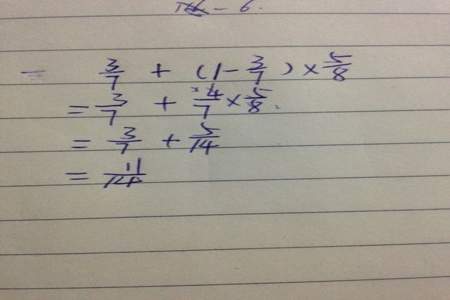 3/7 + (1 - 3/7) × 5/8
= 3/7 + 4/7 × 5/8.
= 3/7 + 5/14
= 11/14